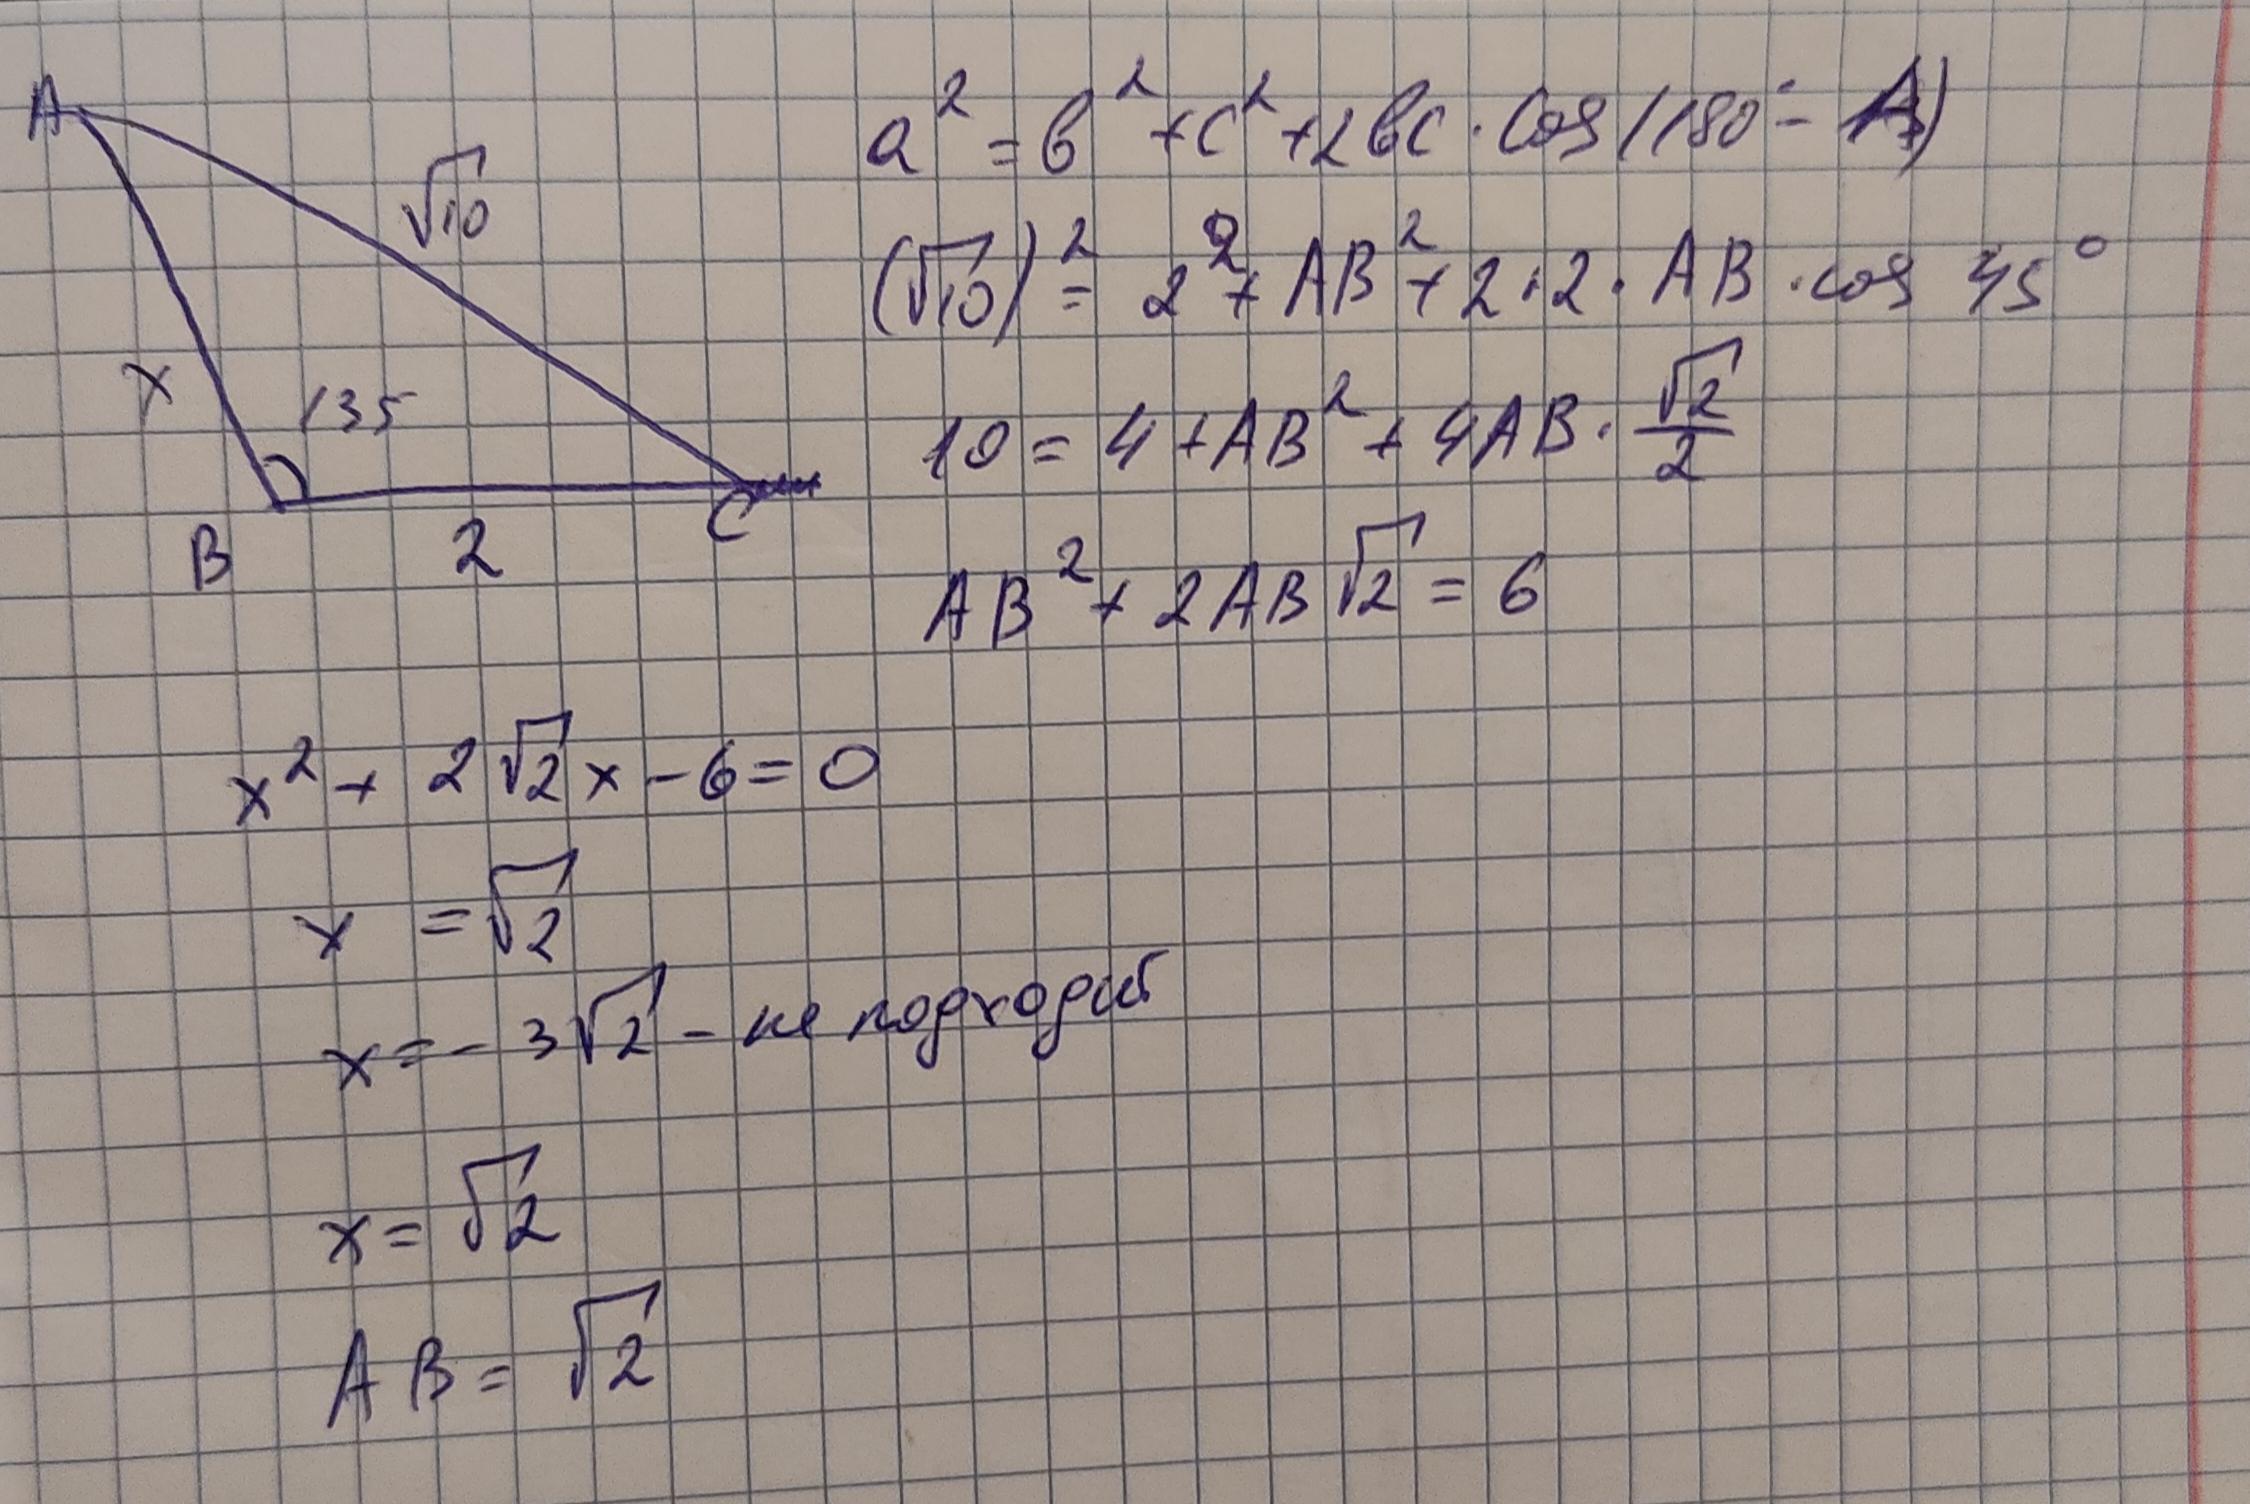 A
√10
x
135
B
2
C
a² = b² + c² + 2bc · cos(180° - A)
(√10)² = 2² + AB² + 2·2· AB · cos 45°
10 = 4 + AB² + 4AB · √2/2
AB² + 2AB√2 = 6
x² + 2√2x - 6 = 0
x = √2
x = - 3√2 - не подходит
x = √2
AB = √2